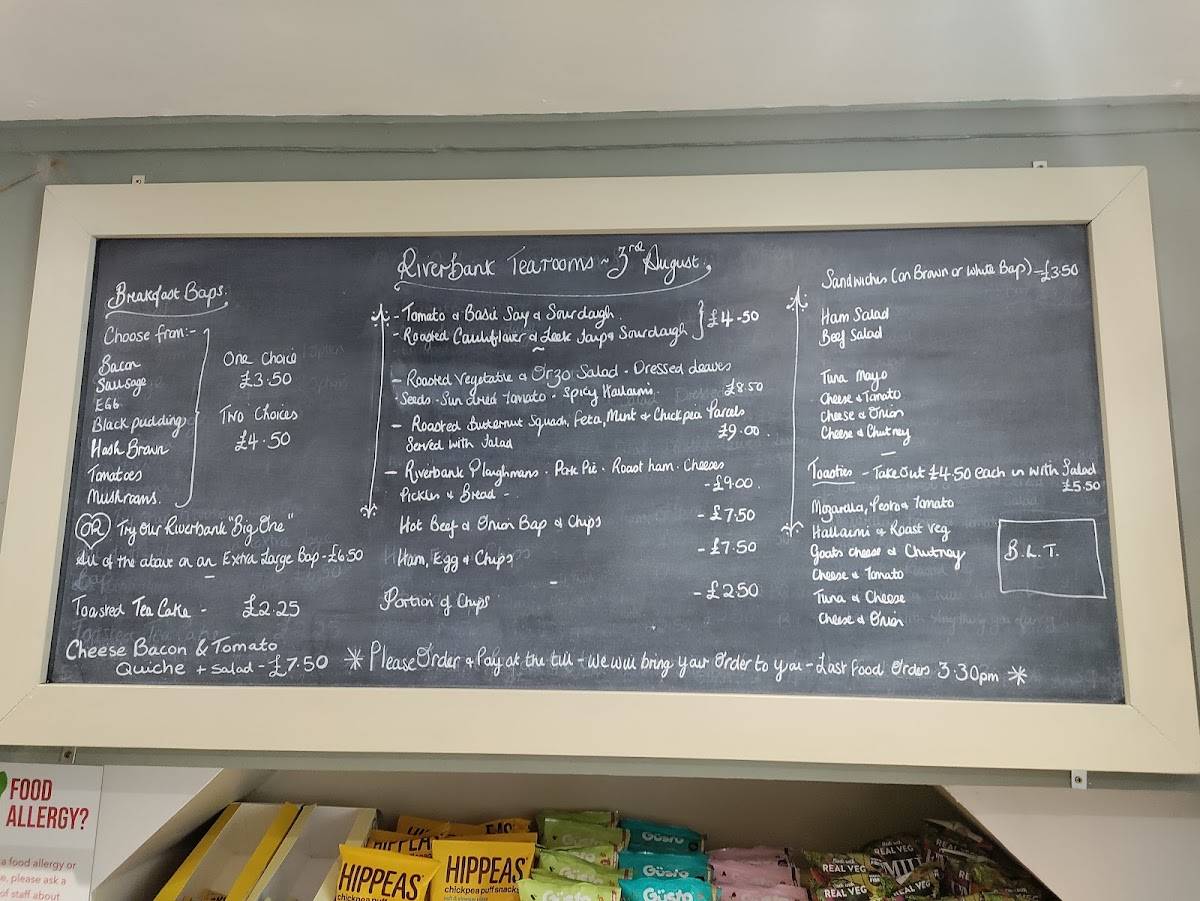 Riverbank Tearooms ~ 3rd August.
Breakfast Baps.
Choose from:-
Bacon
Sausage
EGG
Black pudding
Hash Brown
Tomatoes
Mushrooms.
One Choice
£3.50
Two Choices
£4.50
OR Try our Riverbank "Big One"
All of the above on an Extra Large Bap - £6.50
Toasted Tea Cake - £2.25
Cheese Bacon & Tomato
Quiche + Salad - £7.50
- Tomato & Basil Soup & Sourdough.
- Roasted Cauliflower & Leek Soup & Sourdough } £4-50
- Roasted Vegetable & Orzo Salad - Dressed leaves
- Seeds - Sun dried tomato - Spicy Halloumi. £8.50
- Roasted Butternut Squash, Feta, Mint & Chickpea Parcels
Served with Salad £9.00.
- Riverbank Ploughmans - Pork Pie - Roast ham - Cheeses
Pickles & Bread - - £9.00.
Hot Beef & Onion Bap & Chips - £7.50
Ham, Egg & Chips - £7.50
Portion of Chips - £2.50
Sandwiches (on Brown or White Bap) - £3.50
Ham Salad
Beef Salad
Tuna Mayo
Cheese & Tomato
Cheese & Onion
Cheese & Chutney
Toasties - Take Out £4.50 each in with Salad
£5.50
Mozarella, Pesto & Tomato
Halloumi & Roast Veg
Goats cheese & Chutney
Cheese & Tomato
Tuna & Cheese
Cheese & Onion
B.L.T.
* Please Order & Pay at the till - we will bring your Order to you - Last Food Orders 3.30pm *
FOOD
ALLERGY?
a food allergy or
e, please ask a
of staff about
HIPPEAS
HIPPEAS
chickpea puff snacks
HIPPEAS
chickpea puff
Güsto
Güsto
Güsto
REAL VEG
REAL VEG
REAL VEG
REAL VEG